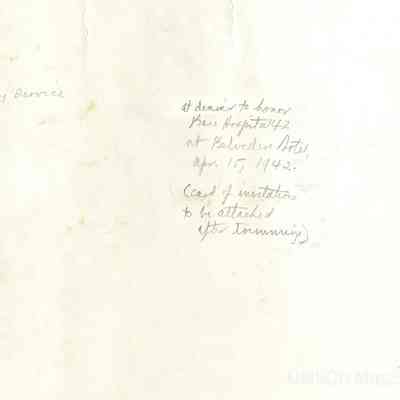 Service
at dinner to honor
Base Hospital 42
at Belvedere Hotel,
Apr. 15, 1942.
(card of invitation
to be attached
after